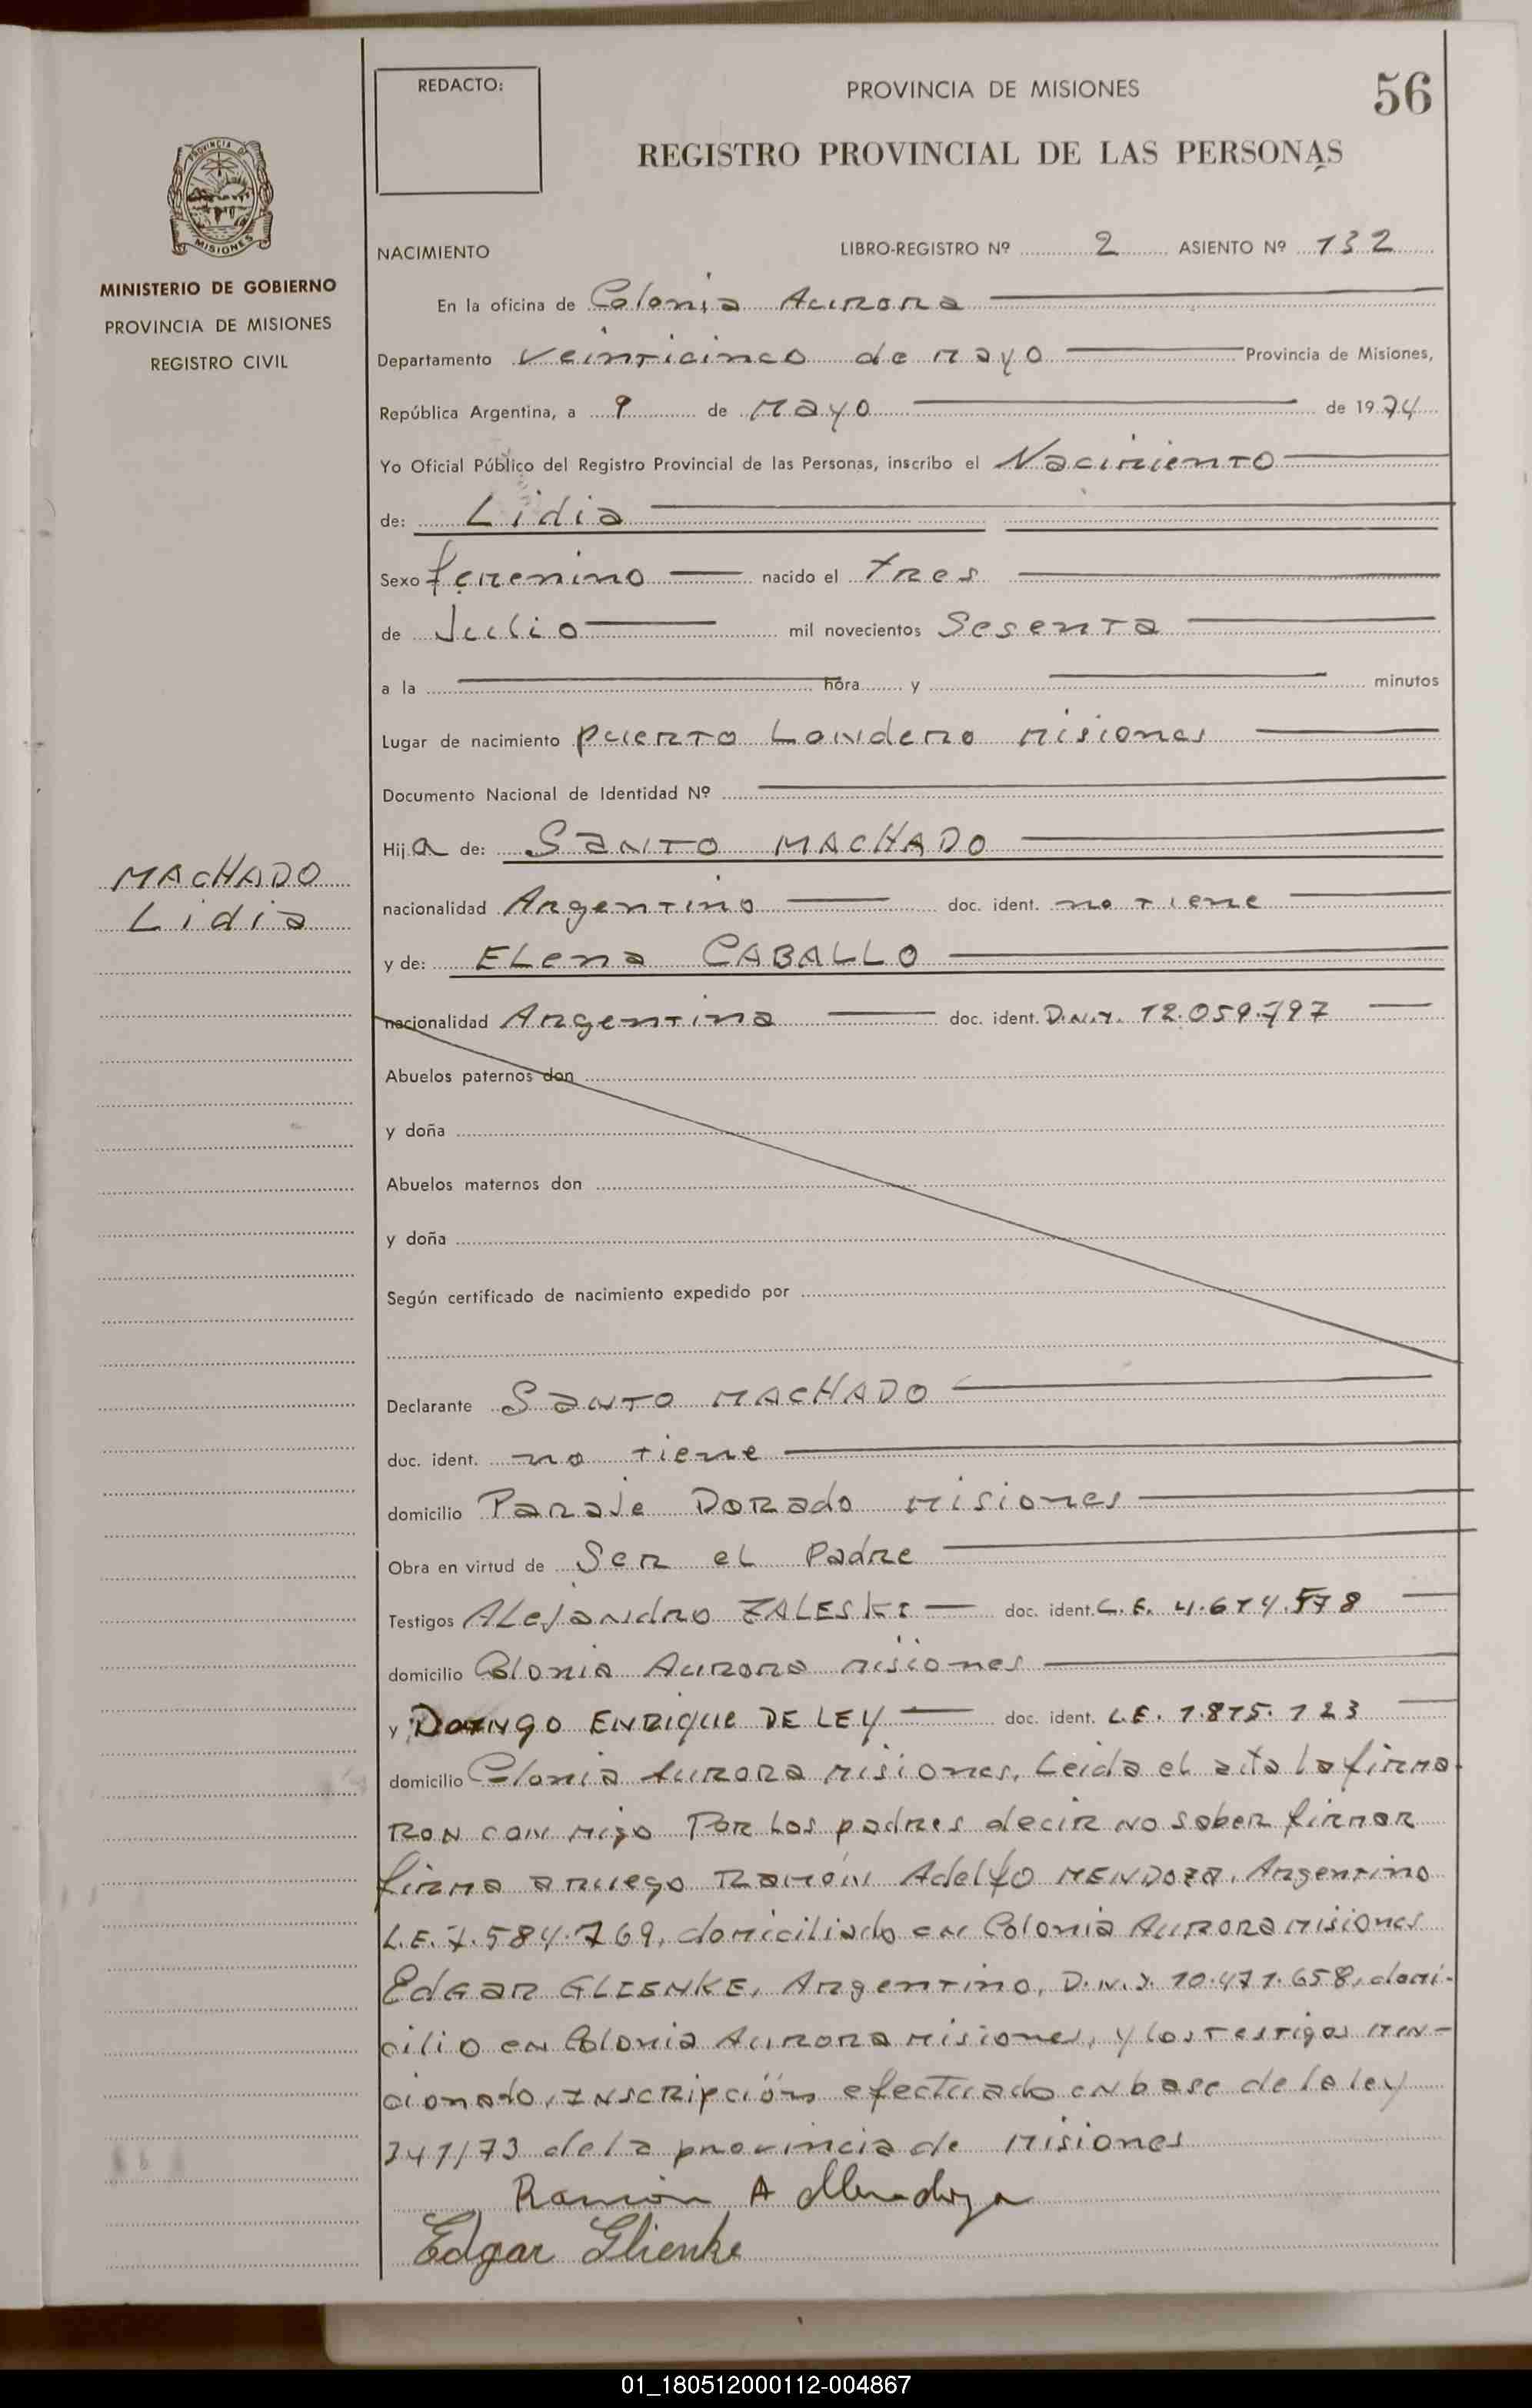 REDACTO:
PROVINCIA DE MISIONES
56
REGISTRO PROVINCIAL DE LAS PERSONAS
PROVINCIA DE
MISIONES
MINISTERIO DE GOBIERNO
PROVINCIA DE MISIONES
REGISTRO CIVIL
NACIMIENTO LIBRO-REGISTRO Nº 2 ASIENTO Nº 132
En la oficina de Colonia Aurora
Departamento Veinticinco de mayo Provincia de Misiones,
República Argentina, a 9 de Mayo de 1974
Yo Oficial Público del Registro Provincial de las Personas, inscribo el Nacimiento
de: Lidia
Sexo femenino nacido el tres
de Julio mil novecientos Sesenta
a la hora y minutos
Lugar de nacimiento puerto Londero misiones
Documento Nacional de Identidad Nº
Hija de: Santo MACHADO
MACHADO
Lidia
nacionalidad Argentino doc. ident. no tiene
y de: ELena CABALLO
nacionalidad Argentina doc. ident. D.N.I. 12.059.797
Abuelos paternos don
y doña
Abuelos maternos don
y doña
Según certificado de nacimiento expedido por
Declarante Santo MACHADO
doc. ident. no tiene
domicilio Paraje Dorado misiones
Obra en virtud de Ser el Padre
Testigos ALejandro ZALESKI doc. ident. L.E. 4.614.578
domicilio Colonia Aurora misiones
y DOMINGO ENRIQUE DE LEY doc. ident. L.E. 1.815.123
domicilio Colonia Aurora misiones, Leida el acta la firma
RON con migo Por Los padres decir no saber firmar
firma aruego Ramón Adelfo MENDOZA, Argentino
L.E. 7.584.769, domiciliado en Colonia Aurora misiones
EdGAR GLIENKE, Argentino, D.N.I. 10.471.658, domi-
cilio en Colonia Aurora misiones, y los testigos men-
cionado, Inscripción efectuado en base de la ley
341/73 de la provincia de Misiones
Ramón A Mendoza
Edgar Glienke
01_180512000112-004867